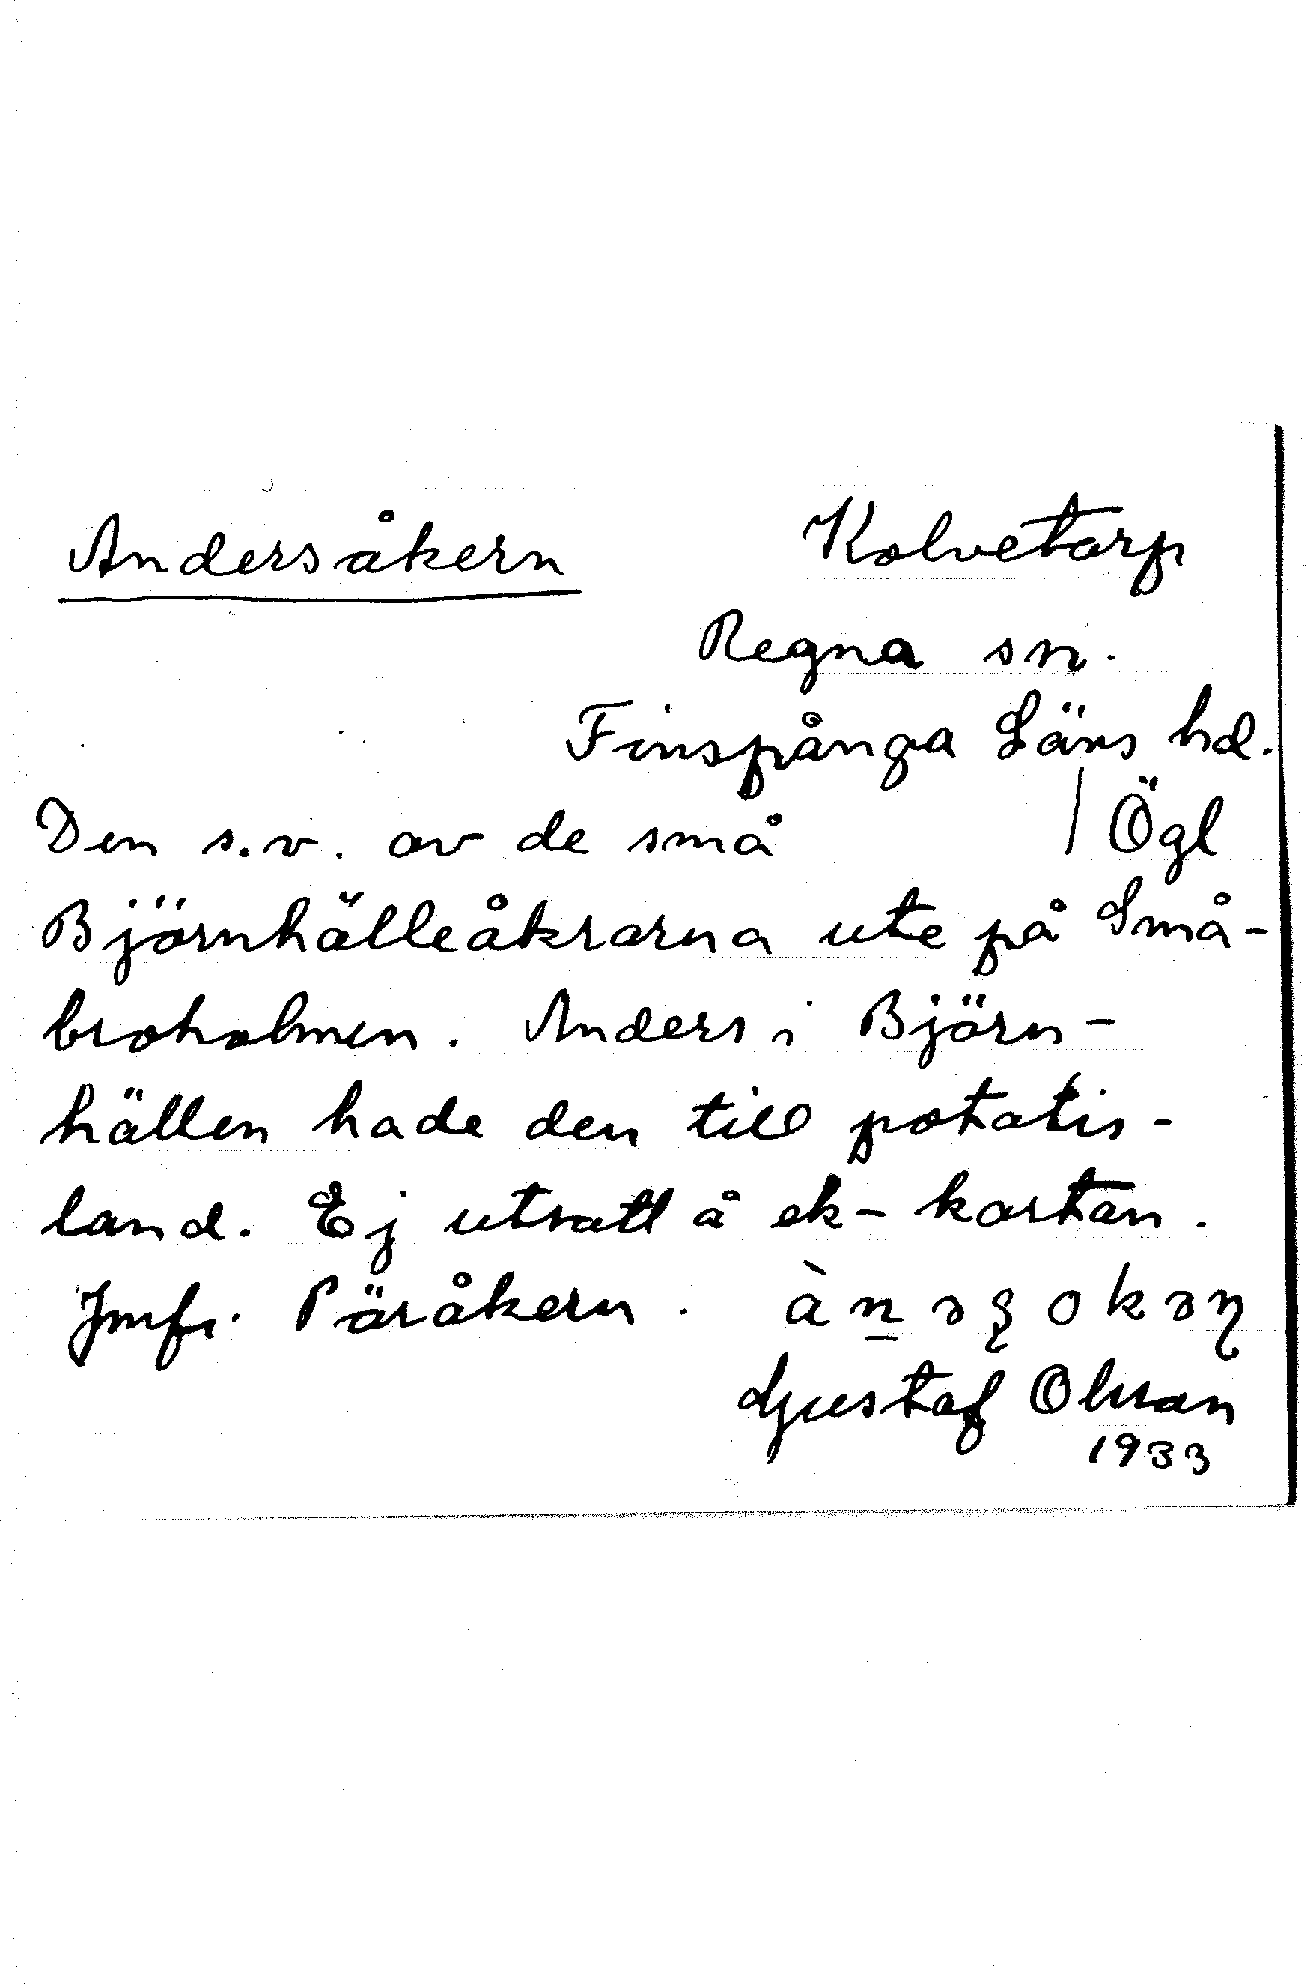 Andersåkern
Kolvetorp
Regna sn.
Finspånga Läns hd.
Den s.v. av de små | Ögl
Björnhälleåkrarna ute på Små-
broholmen. Anders i Björn-
hällen hade den till potatis-
land. Ej utsatt å ek-kartan.
Jmfr. Päråkern.
Gustaf Olsson
1933